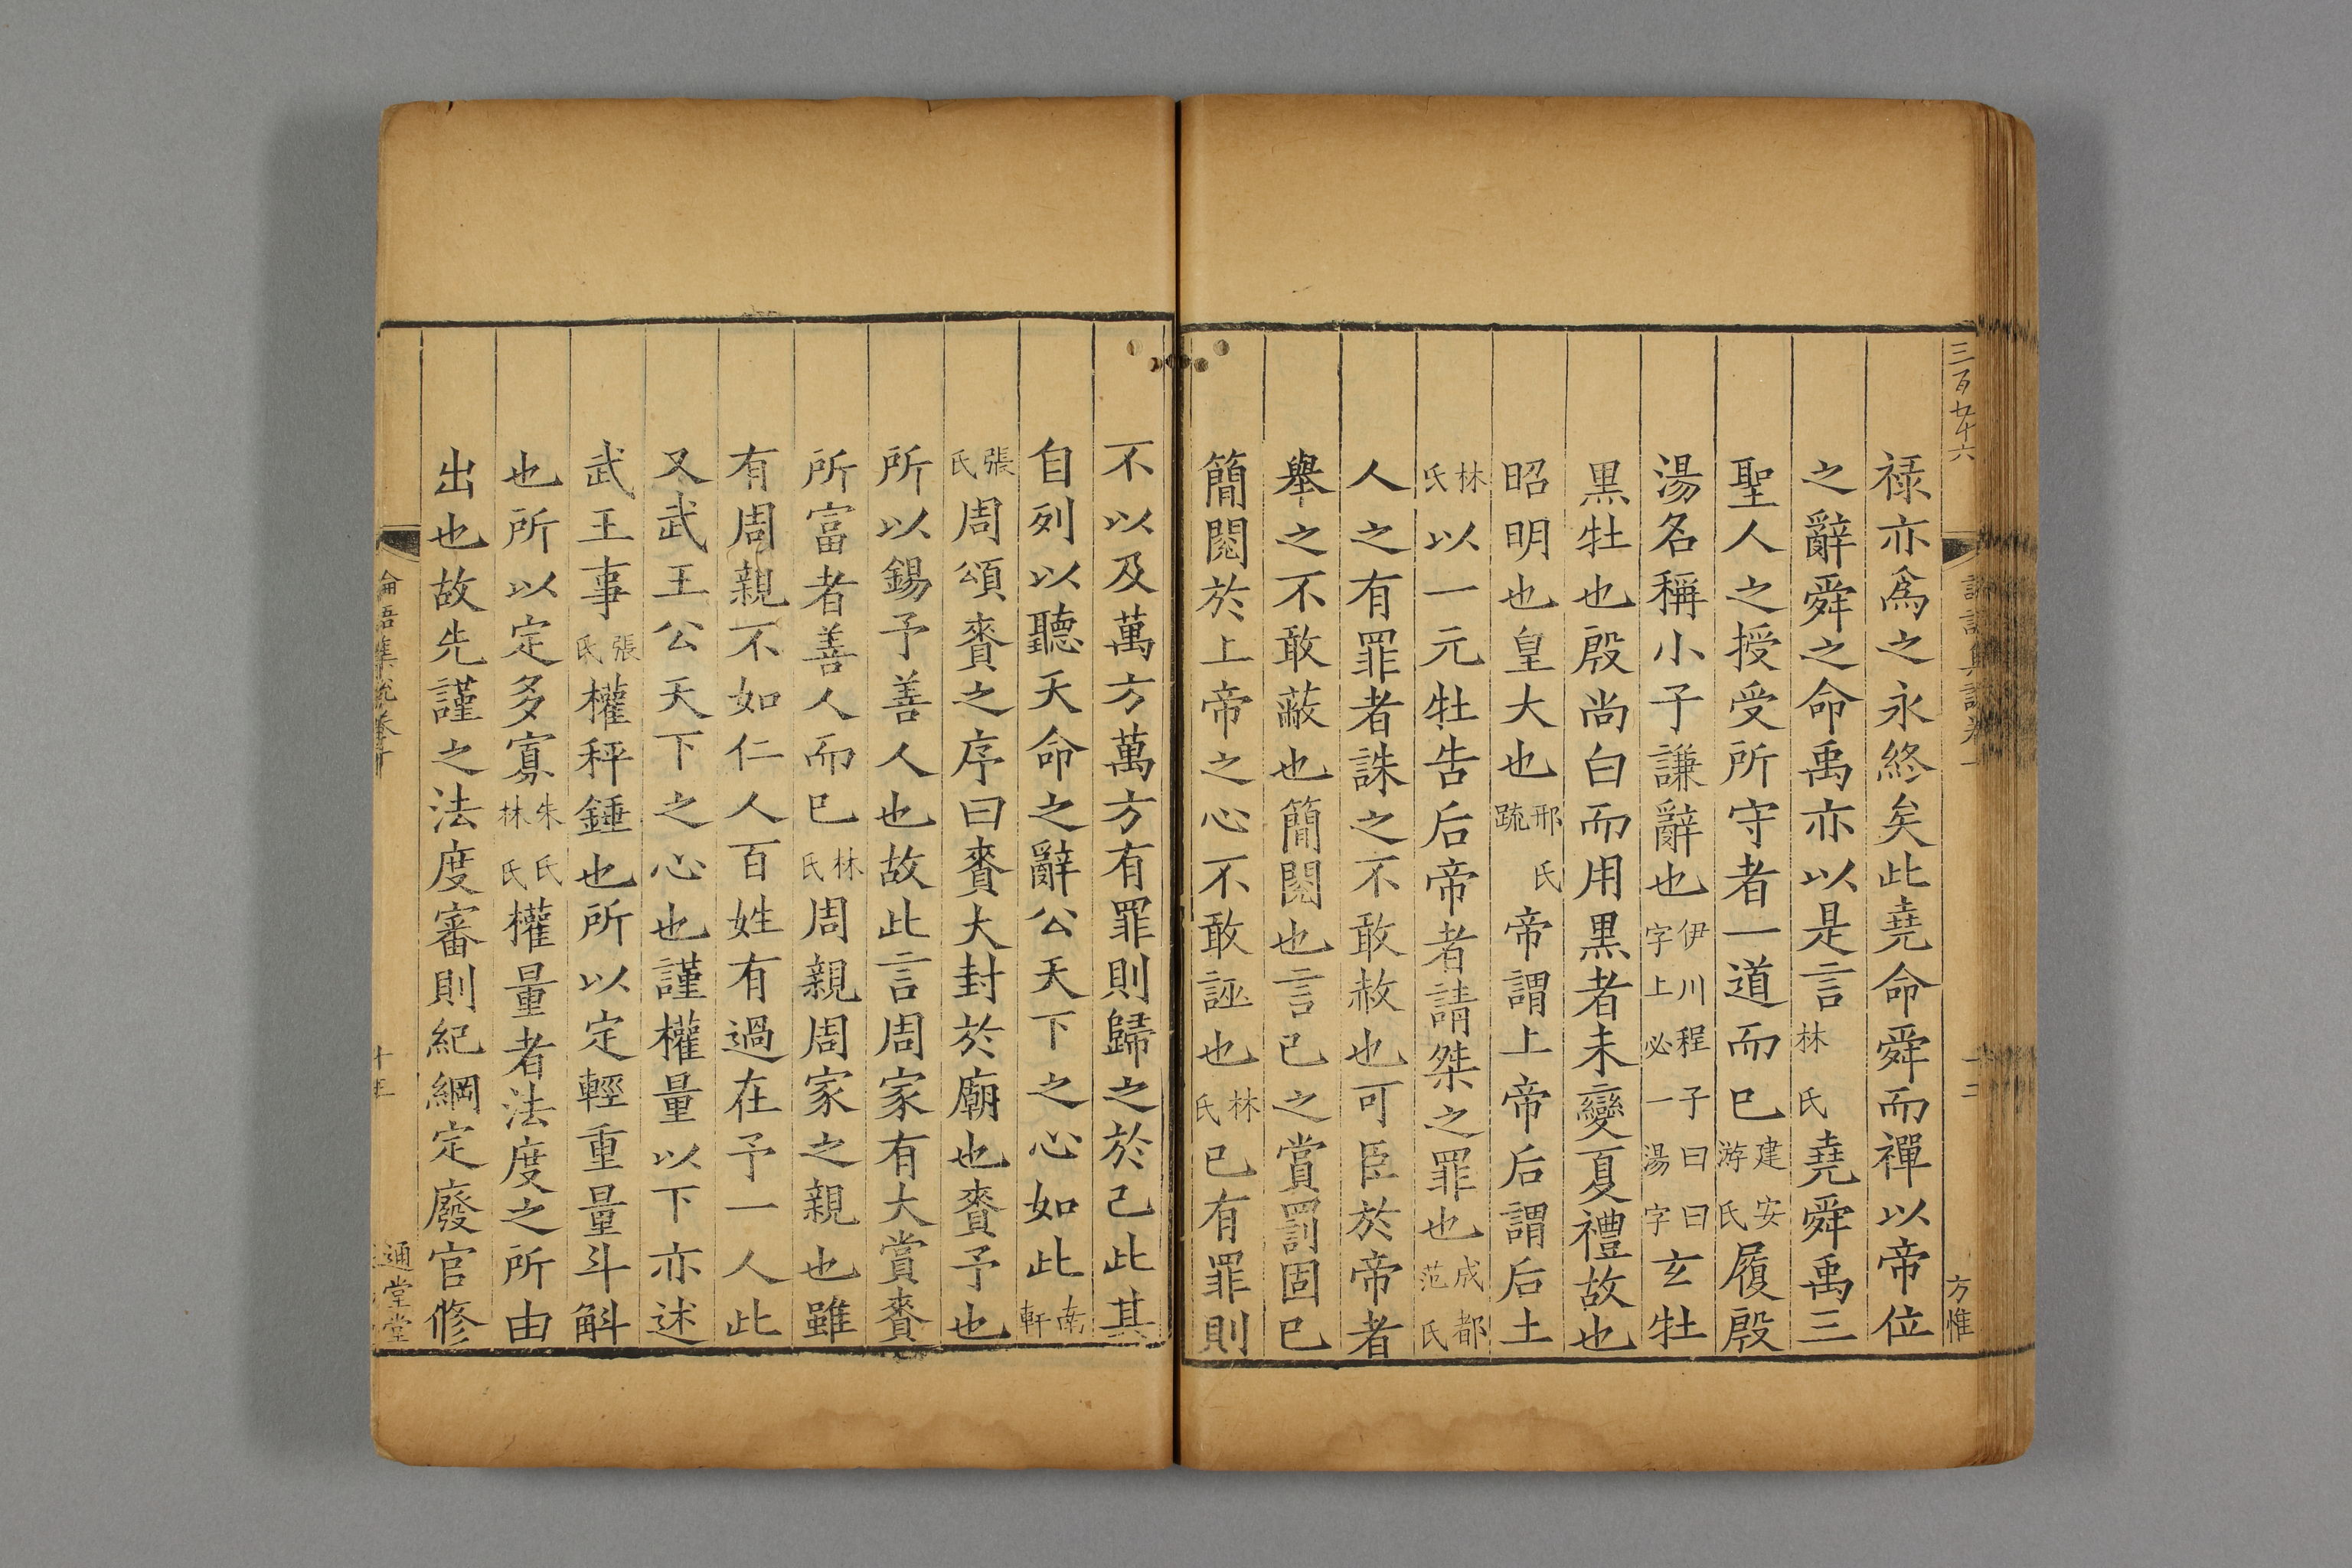 三百九十六
禄亦爲之永終矣此堯命舜而禪以帝位
之辭舜之命禹亦以是言林氏堯舜禹三
聖人之授受所守者一道而已建安游氏履殷
湯名稱小子謙辭也伊川程子曰曰字上必一湯字玄牡
黒牡也殷尚白而用黒者未變夏禮故也
昭明也皇大也邢氏疏帝謂上帝后謂后土
林氏以一元牡告后帝者請桀之罪也成都范氏
人之有罪者誅之不敢赦也可臣於帝者
舉之不敢蔽也簡閱也言已之賞罰固已
簡閱於上帝之心不敢誣也林氏已有罪則
不以及萬方萬方有罪則歸之於己此其
自列以聽天命之辭公天下之心如此南軒
張氏周頌賚之序曰賚大封於廟也賚予也
所以錫予善人也故此言周家有大賞賚
所富者善人而已林氏周親周家之親也雖
有周親不如仁人百姓有過在予一人此
又武王公天下之心也謹權量以下亦述
武王事張氏權秤錘也所以定輕重量斗斛
也所以定多寡朱氏林氏權量者法度之所由
出也故先謹之法度審則紀綱定廢官修
論語集説卷十
通堂
方惟